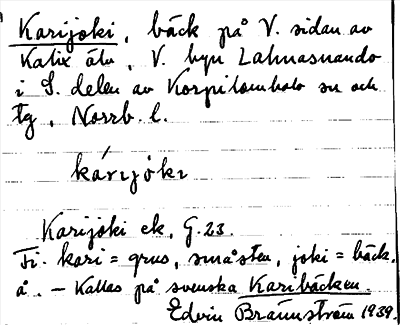 Karijoki, bäck på V. sidan av
Kalix älv, V. byn Lahnasuando
i S. delen av Korpilombolo sn och
tg, Norrb. l.
kárijóki
Karijoki ek, G. 23.
Fi. kari = grus, småsten, joki = bäck,
å. – Kallas på svenska Karibäcken.
Edvin Brännström 1939.